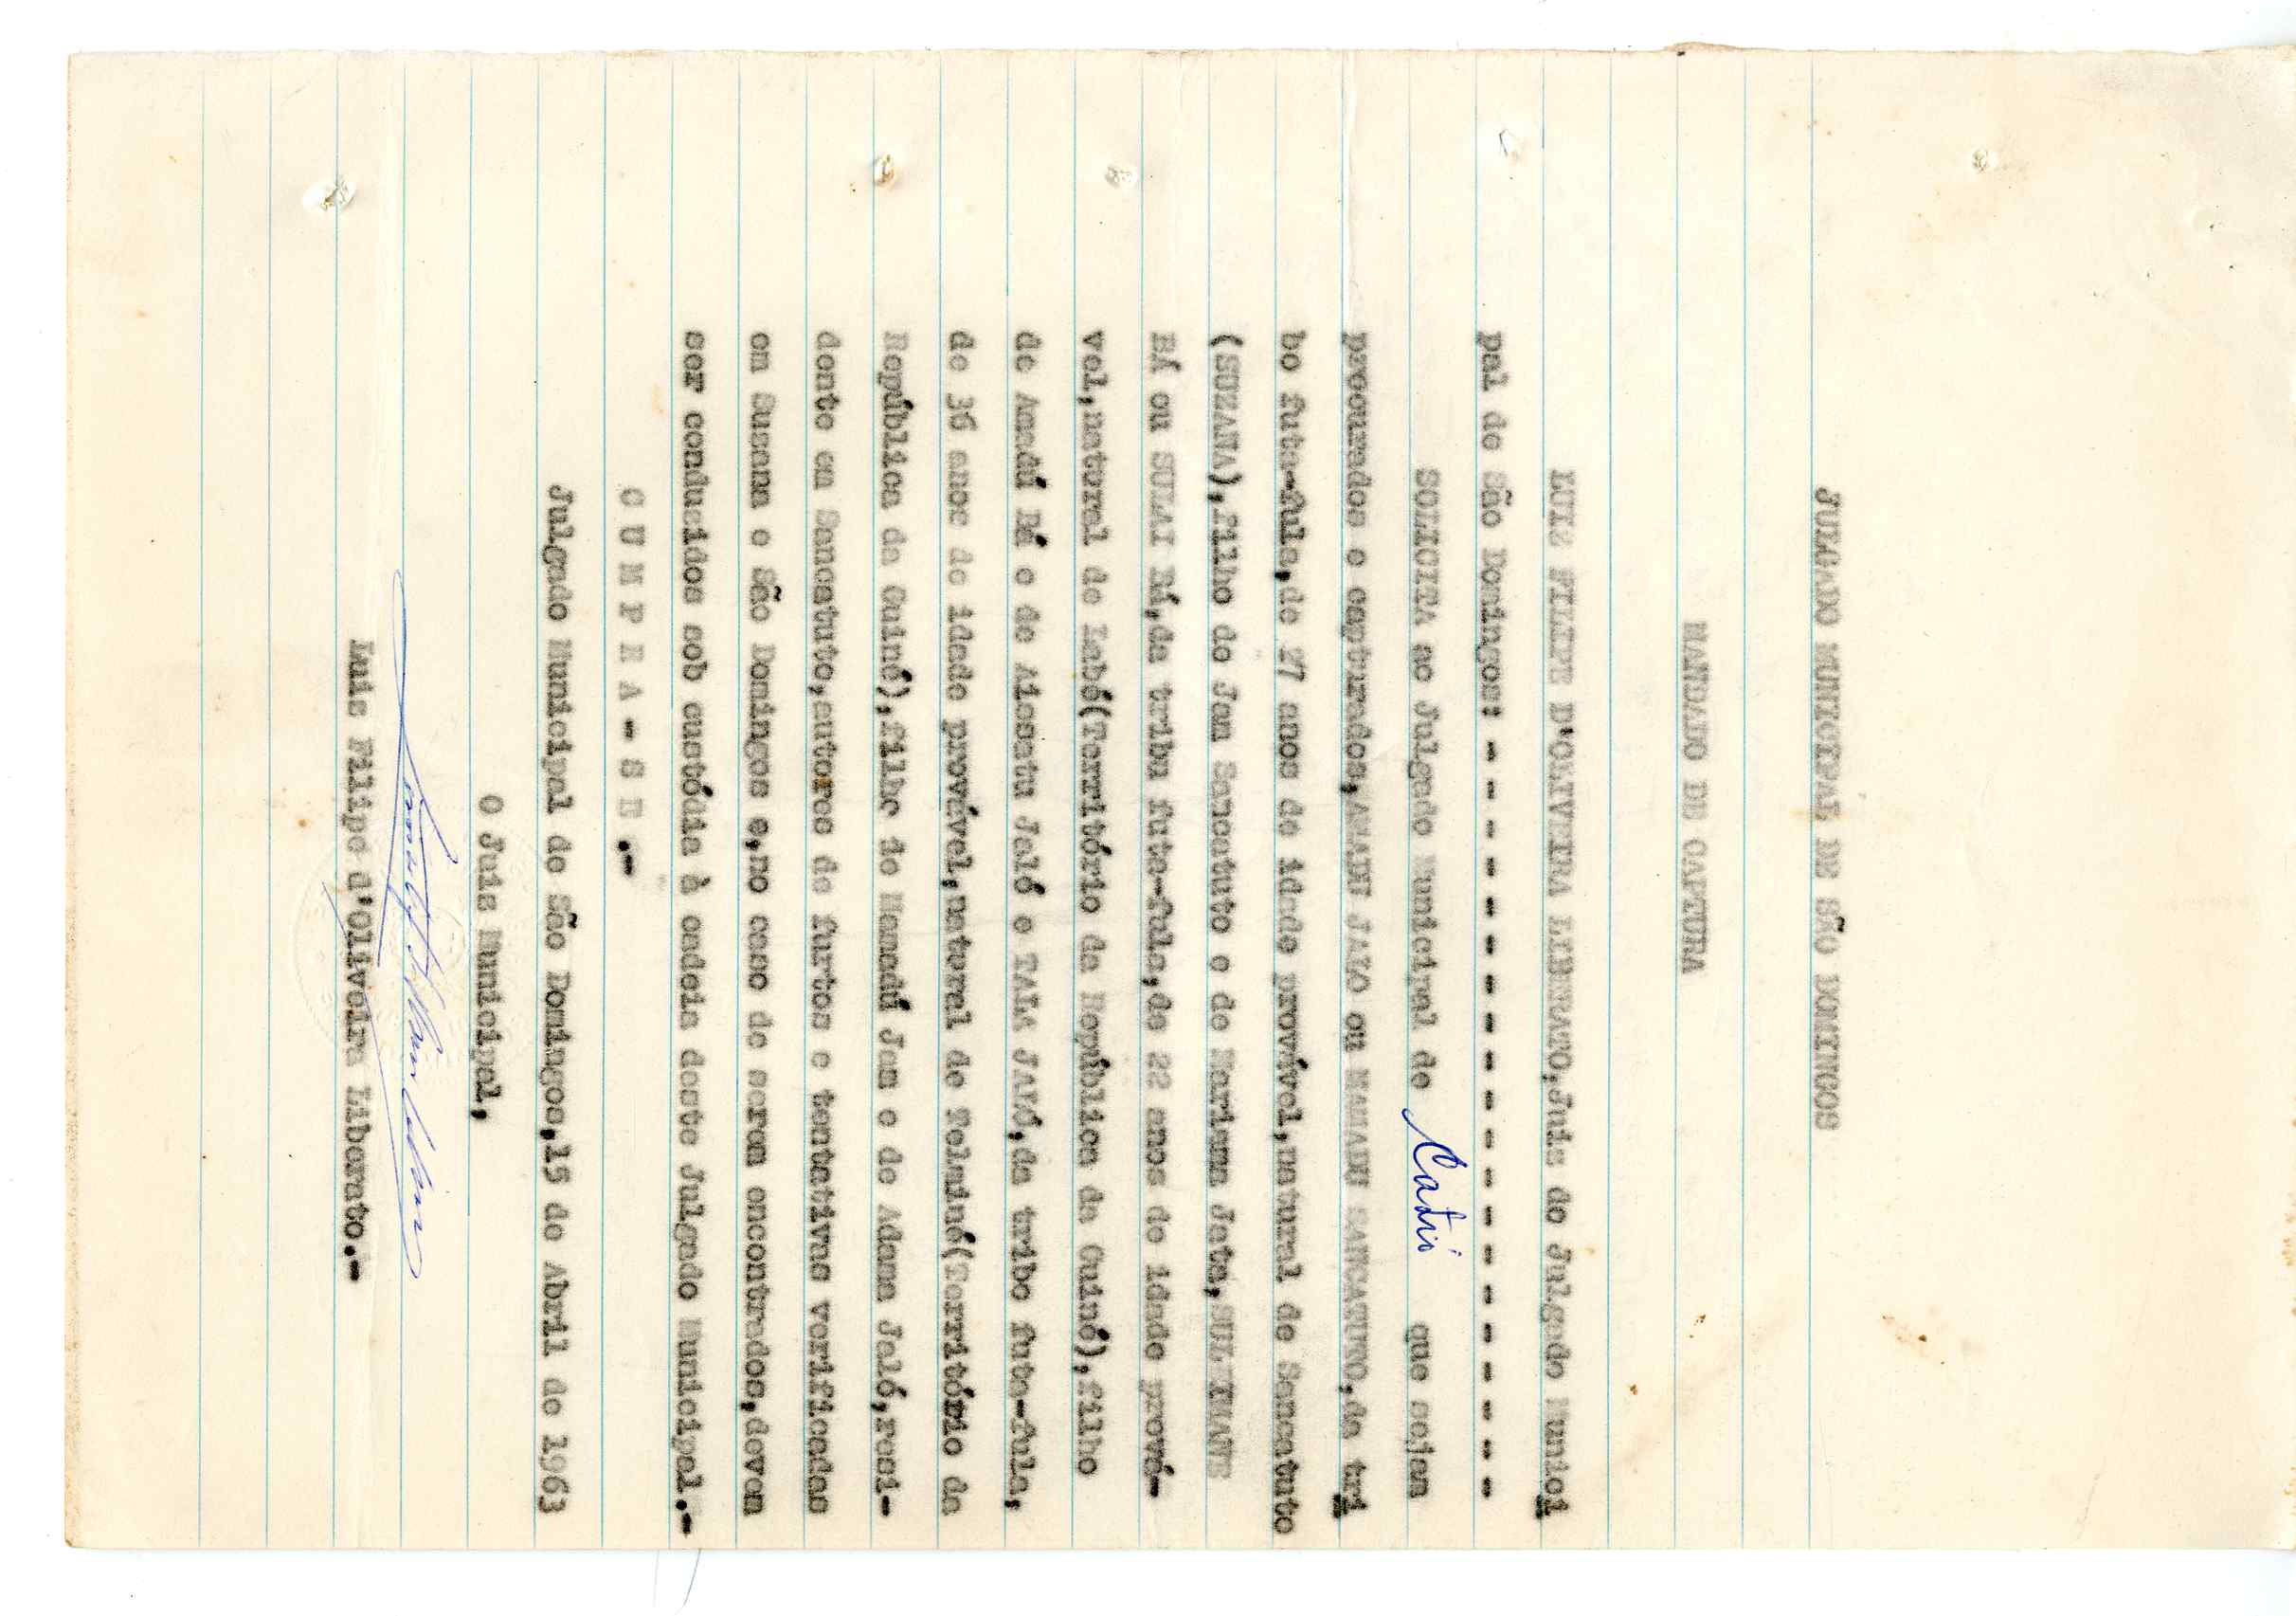 JULGADO MUNICIPAL DE SÃO DOMINGOS
MANDADO DE CAPTURA
LUIS FILIPE D'OLIVEIRA LIBERATO,Juis do Julgado Munici
pal de São Domingos: - - - - - - - - - - - - - - - - - - -
SOLICITA ao Julgado Municipal de Catió que sejam
procurados e capturados,AMADU JALO ou MAMADU SANCATUTO,da tri
bo futa-fula,de 27 anos de idade provável,natural de Sancatuto
(SUZANA),filho de Jam Sancatuto e de Mariama Jata,
BÁ ou SULAI BÁ,da tribu futa-fula,de 22 anos de idade prová-
vel,natural de Labé(Território da República da Guiné),filho
de Amadú Bá e de Aissatu Jaló e TALA JALÓ,da tribo futa-fula,
de 36 anos de idade provável,natural de Telminé(Território da
República da Guiné),filho de Mamadú Jam e de Adama Jaló,resi-
dente em Sancatuto,autores de furtos e tentativas verificadas
em Susana e São Domingos e,no caso de serem encontrados,devem
ser condusidos sob custódia à cadeia deste Julgado Municipal.-
C U M P R A - S E .-
Julgado Municipal de São Domingos,15 de Abril de 1963
O Juis Municipal,
Luis Filipe d'Oliveira Liberato.-